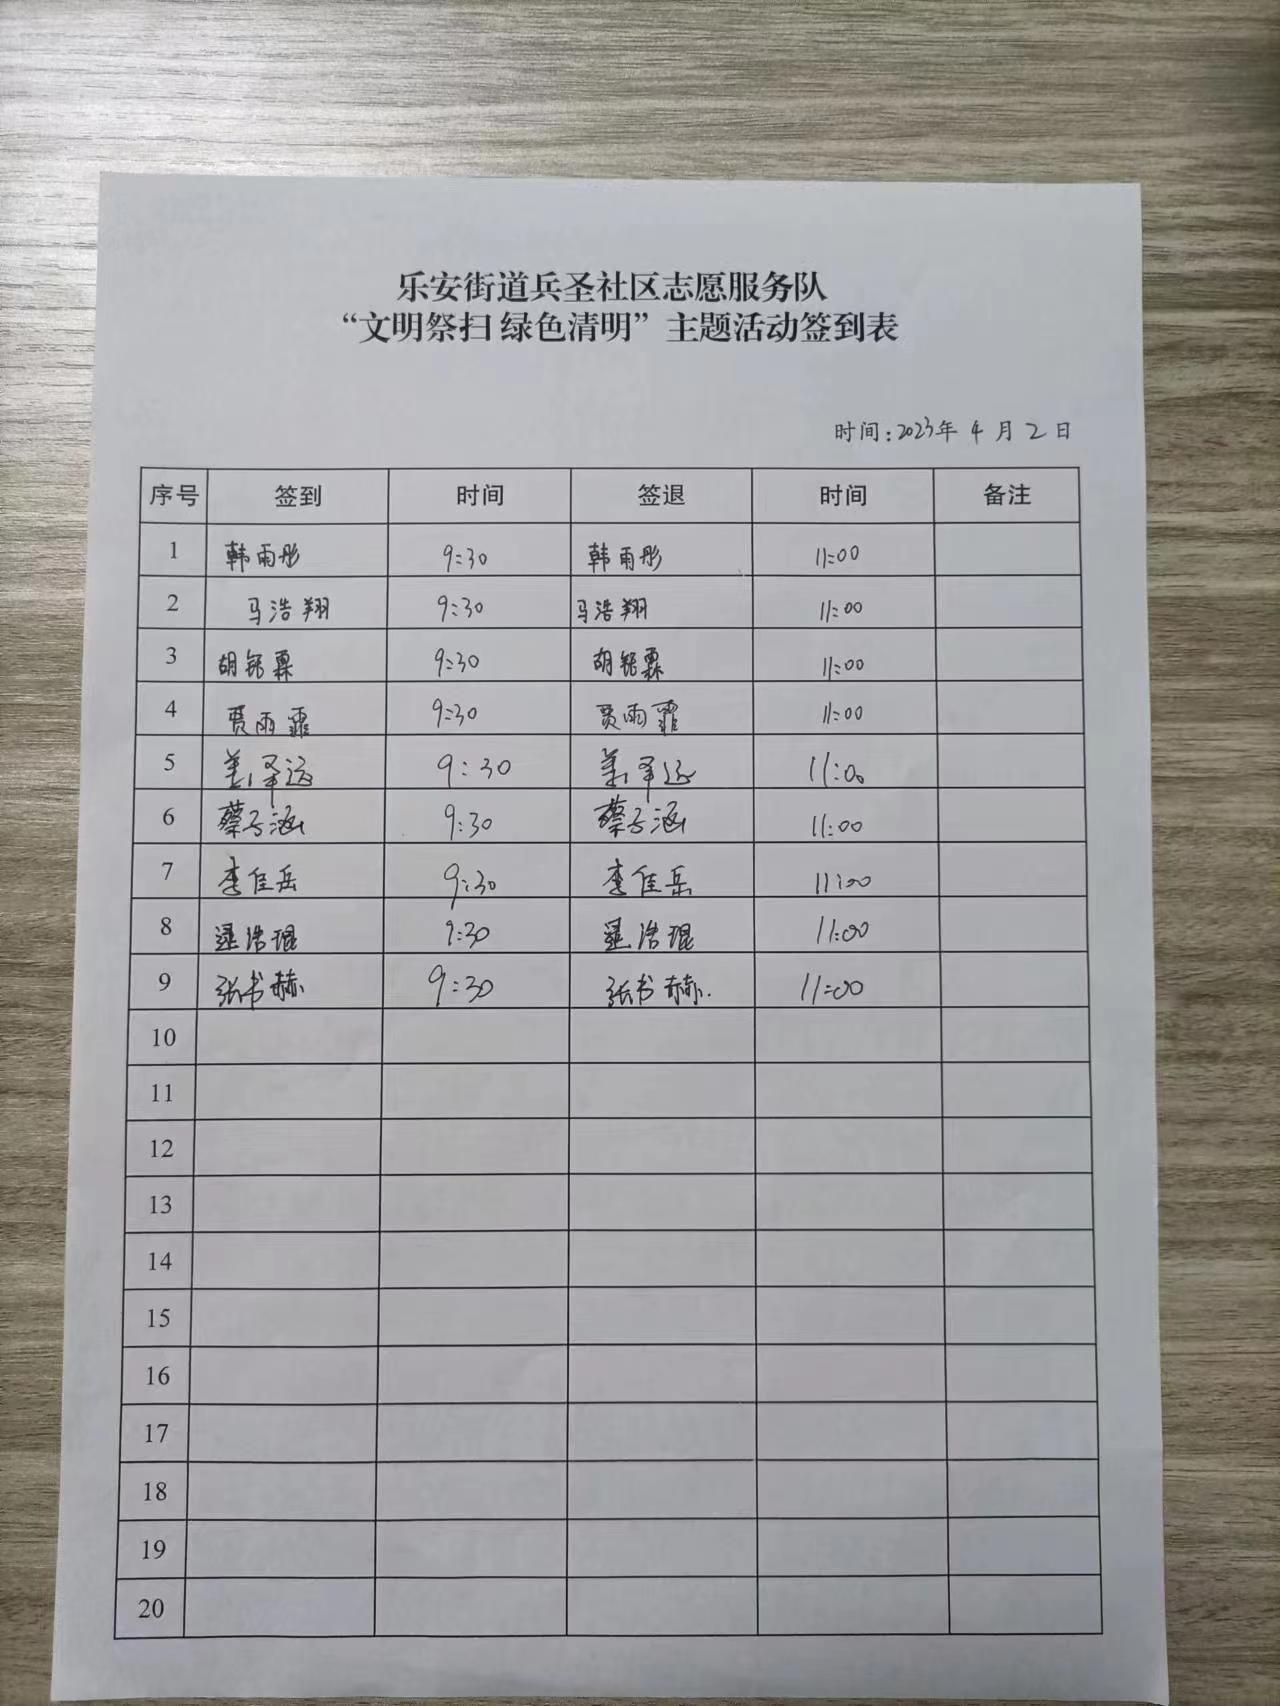 乐安街道兵圣社区志愿服务队
“文明祭扫 绿色清明”主题活动签到表
时间:2023年 4 月 2 日
序号 签到 时间 签退 时间 备注
1 韩雨彤 9:30 韩雨彤 11:00
2 马浩翔 9:30 马浩翔 11:00
3 胡铭霖 9:30 胡铭霖 11:00
4 贾雨霏 9:30 贾雨霏 11:00
5 姜泽远 9:30 姜泽远 11:00
6 蔡子涵 9:30 蔡子涵 11:00
7 李佳岳 9:30 李佳岳 11:00
8 浩琨 9:30 浩琨 11:00
9 张书赫 9:30 张书赫 11:00
10
11
12
13
14
15
16
17
18
19
20